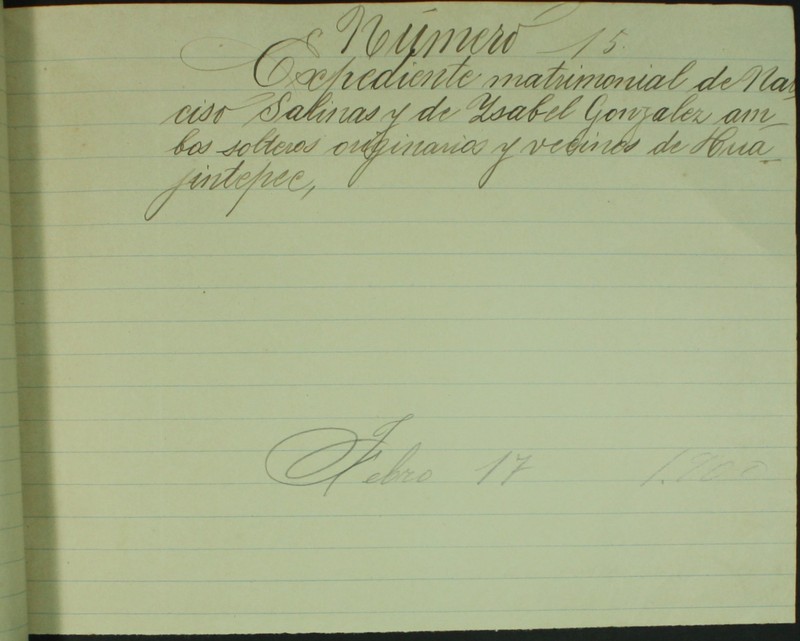 Número 15.
Expediente matrimonial de Nar-
ciso Salinas y de Ysabel Gonzalez am-
bos solteros originarios y vecinos de Hua-
jintepec,
Febro 17 1.900